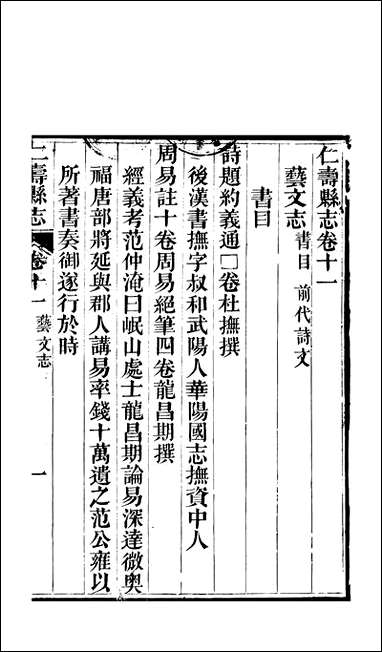 仁壽縣志卷十一
藝文志 書目 前代詩文
書目
詩題約義通□卷杜撫撰
後漢書撫字叔和武陽人華陽國志撫資中人
周易註十卷周易絕筆四卷龍昌期撰
經義考范仲淹曰岷山處士龍昌期論易深達微奧
福唐部將延與郡人講易率錢十萬遺之范公雍以
所著書奏御遂行於時
仁壽縣志 卷十一 藝文志 一